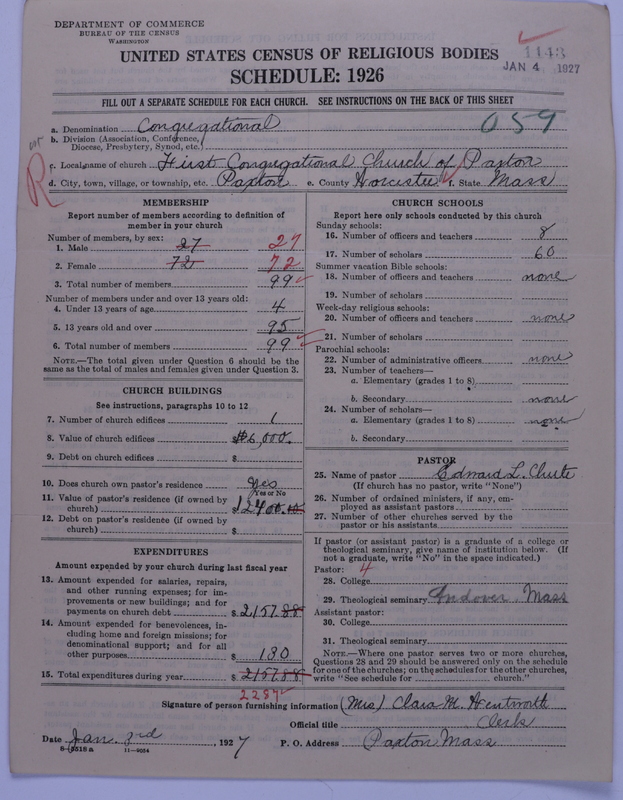 DEPARTMENT OF COMMERCE
BUREAU OF THE CENSUS
WASHINGTON
1143
JAN 4 1927
UNITED STATES CENSUS OF RELIGIOUS BODIES
SCHEDULE: 1926
FILL OUT A SEPARATE SCHEDULE FOR EACH CHURCH. SEE INSTRUCTIONS ON THE BACK OF THIS SHEET
a. Denomination Congregational 059
b. Division (Association, Conference, Diocese, Presbytery, Synod, etc.)
c. Local name of church First Congregational Church of Paxton
d. City, town, village, or township, etc. Paxton e. County Worcester f. State Mass
R
MEMBERSHIP
Report number of members according to definition of member in your church
Number of members, by sex:
1. Male 27 27
2. Female 72 72
3. Total number of members 99
Number of members under and over 13 years old:
4. Under 13 years of age 4
5. 13 years old and over 95
6. Total number of members 99
NOTE.—The total given under Question 6 should be the same as the total of males and females given under Question 3.
CHURCH BUILDINGS
See instructions, paragraphs 10 to 12
7. Number of church edifices 1
8. Value of church edifices $6,000.
9. Debt on church edifices $
10. Does church own pastor's residence Yes
Yes or No
11. Value of pastor's residence (if owned by church) $2400.00
12. Debt on pastor's residence (if owned by church) $
EXPENDITURES
Amount expended by your church during last fiscal year
13. Amount expended for salaries, repairs, and other running expenses; for improvements or new buildings; and for payments on church debt $ 2157.88
14. Amount expended for benevolences, including home and foreign missions; for denominational support; and for all other purposes $ 130
15. Total expenditures during year $ 2157.88
2287
CHURCH SCHOOLS
Report here only schools conducted by this church
Sunday schools:
16. Number of officers and teachers 8
17. Number of scholars 60
Summer vacation Bible schools:
18. Number of officers and teachers none
19. Number of scholars
Week-day religious schools:
20. Number of officers and teachers none
21. Number of scholars
Parochial schools:
22. Number of administrative officers none
23. Number of teachers—
a. Elementary (grades 1 to 8)
b. Secondary none
24. Number of scholars—
a. Elementary (grades 1 to 8) none
b. Secondary
PASTOR
25. Name of pastor Edward L. Chute
(If church has no pastor, write "None")
26. Number of ordained ministers, if any, employed as assistant pastors
27. Number of other churches served by the pastor or his assistants
If pastor (or assistant pastor) is a graduate of a college or theological seminary, give name of institution below. (If not a graduate, write "No" in the space indicated.)
Pastor: 4
28. College
29. Theological seminary Andover Mass
Assistant pastor:
30. College
31. Theological seminary
NOTE.—Where one pastor serves two or more churches, Questions 28 and 29 should be answered only on the schedule for one of the churches; on the schedules for the other churches, write "See schedule for church."
Signature of person furnishing information (Mrs) Clara M. Wentworth
Official title Clerk
Date Jan. 3rd, 1927 P. O. Address Paxton Mass
8-5518a 11-9054